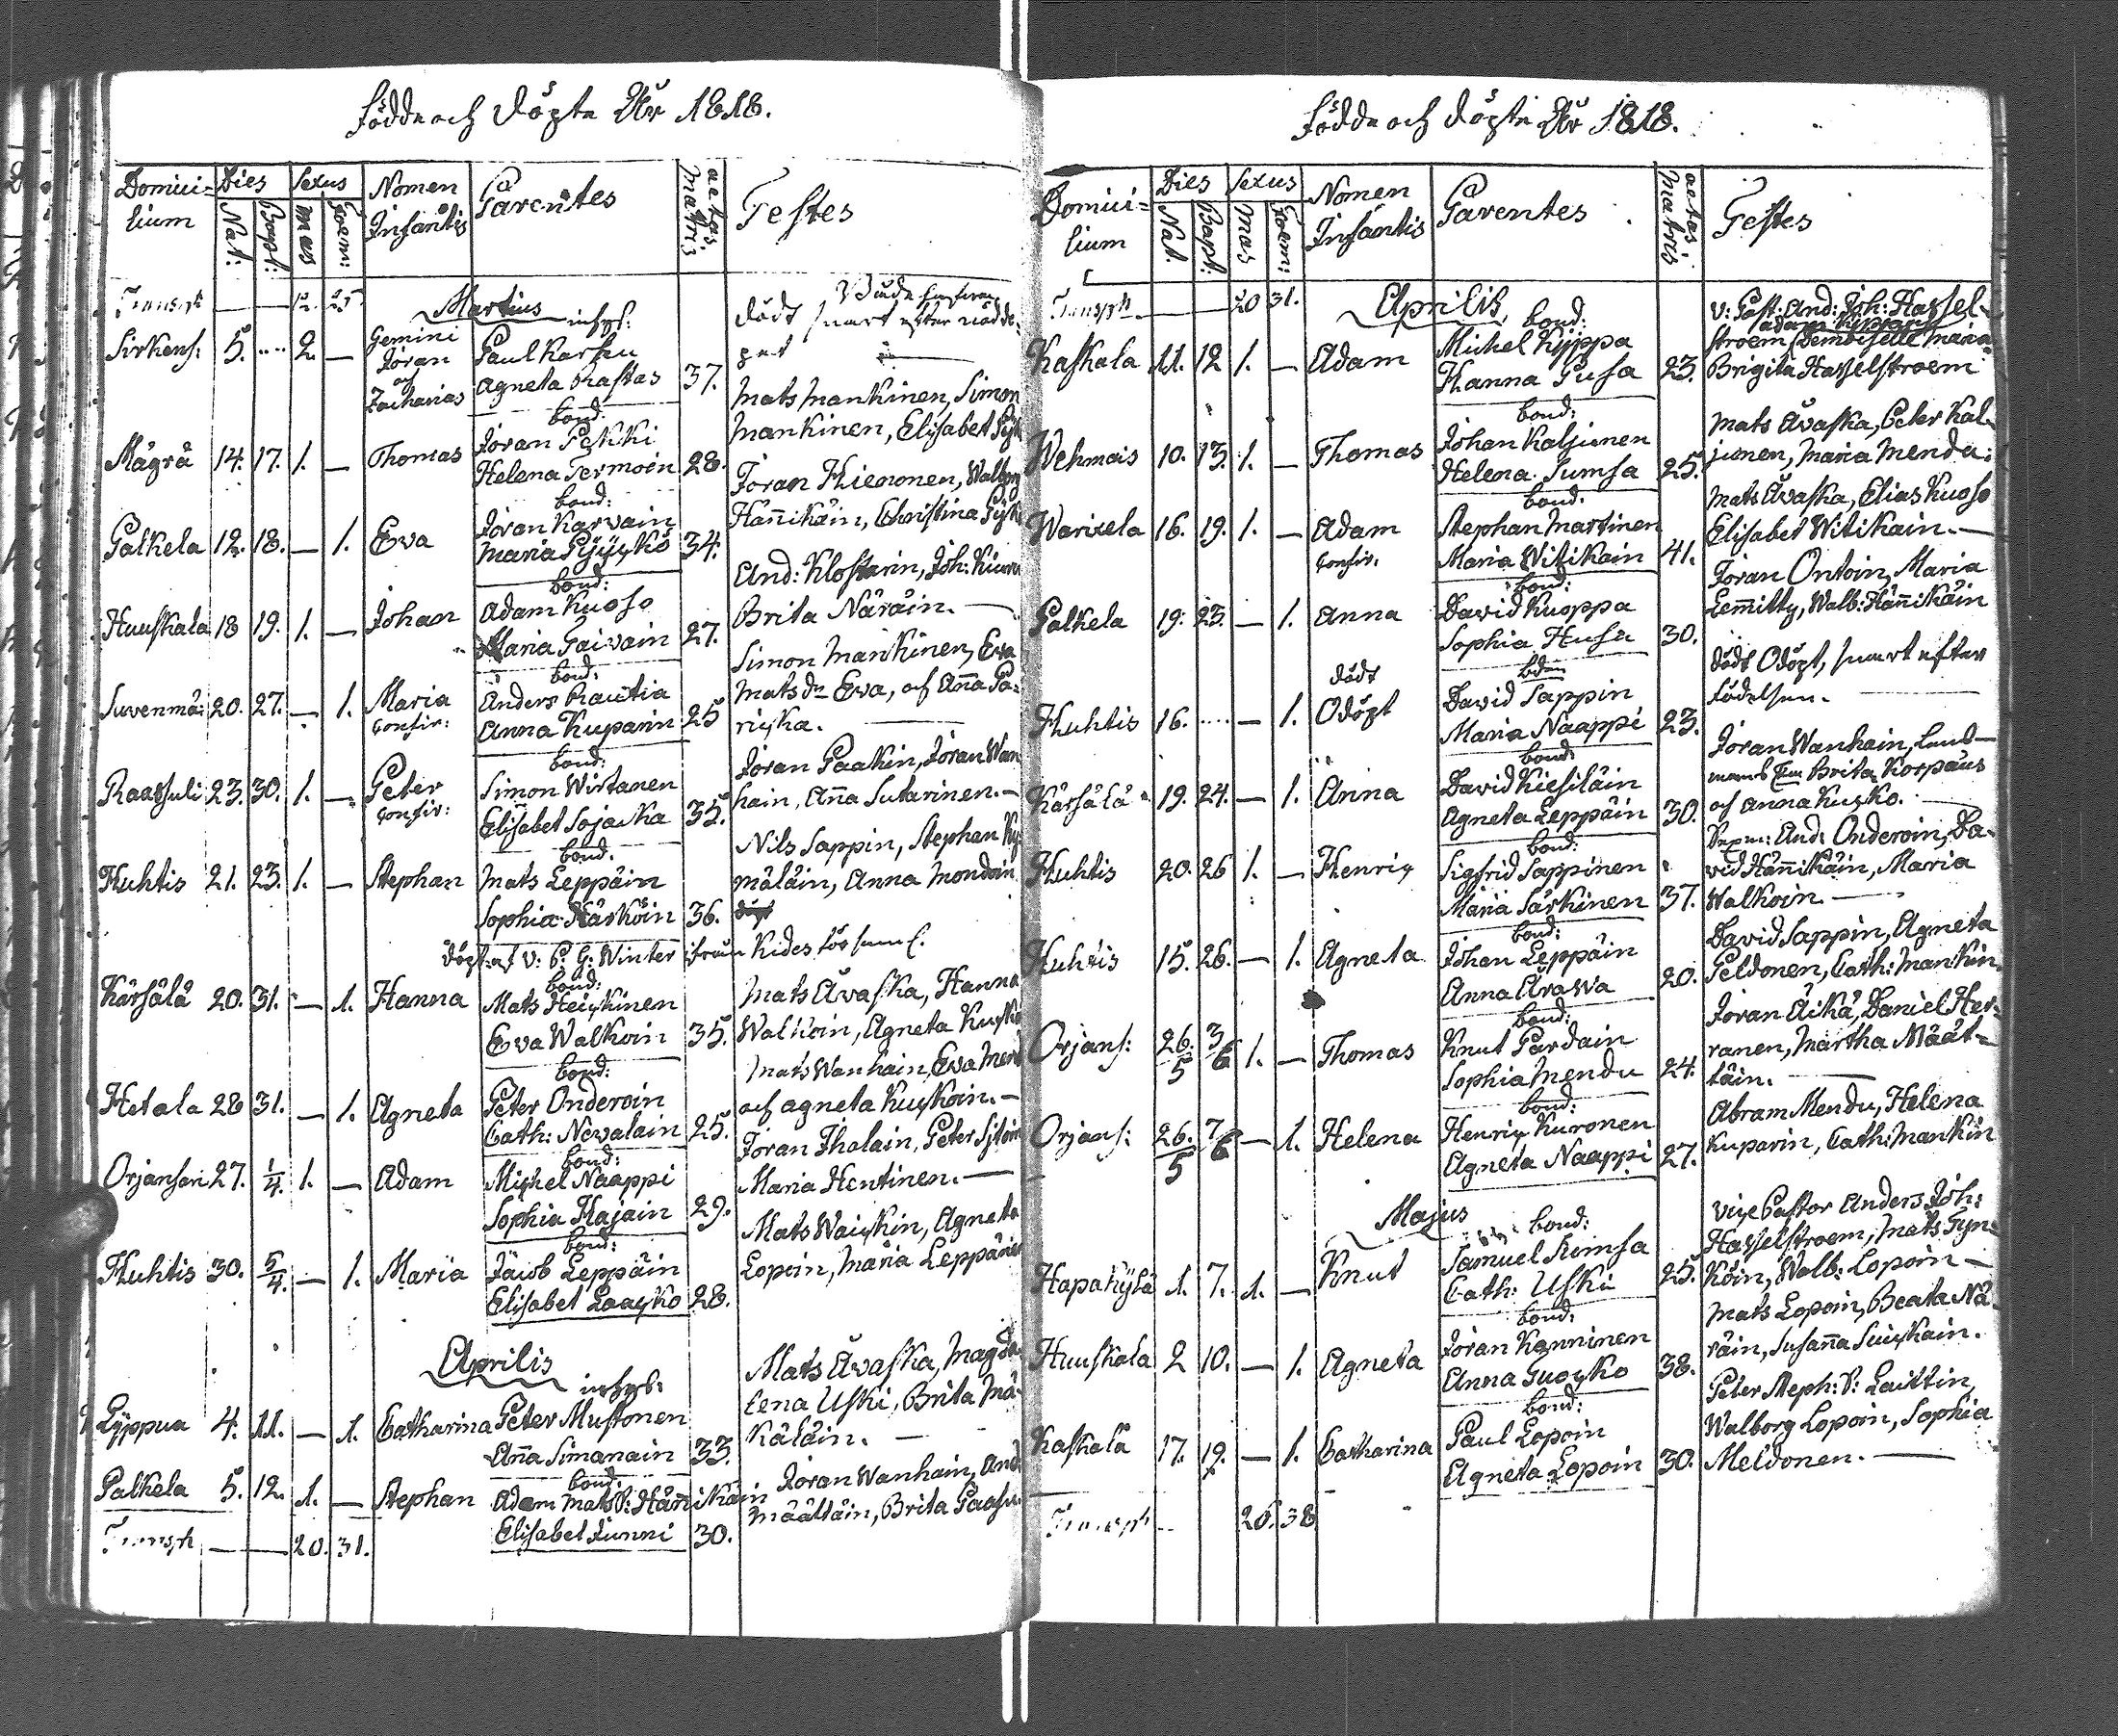 Födde och Döpte År 1818.
Domici-
lium
Dies
Nat:
Bapt:
Sexus
Mas
Foem:
Nomen
Infantis
Parentes
aetas
Matris
Testes
Transp 12. 25.
Martius
inhys:
Sirkens: 5. 2. —
Gemini
Jöran
och
Zacharias
Paul Karhu
Agneta Rastas 37.
Mägrä 14. 17. 1. — Thomas
bond:
Jöran Pekki
Helena Termoin 28.
Mats Mankinen, Simon
Mankinen, Elisabet
Palkela 12. 18. — 1. Eva
bond:
Jöran Karvain
Maria Pyyckö 34.
Jöran Hienonen, Walborg
Hännikäin, Christina
Huuskala 18 19. 1. — Johan
bond:
Adam Kuoso
Maria Paivain 27.
And: Klostarin, Joh:
Brita Näräin. —
Suvenmä: 20. 27. — 1. Maria
confir:
bond:
Anders Rautia
Anna Kuparin 25
Simon Mankinen, Eva
Mats dr Eva, och Anna Pa-
ricka.
Raatsuli 23. 30. 1. — Peter
confir:
bond:
Simon Wirtanen
Elisabet Sojacka 35.
Jöran Paakin, Jöran Wan
hain, Anna Sutarinen. —
Huhtis 21. 23. 1. — Stephan
bond.
Mats Leppäin
Sophia Härköin 36.
Nils Sappin, Stephan Ky
mäläin, Anna Mondoin
Döpt af V: P: G: Winter ifrån Kides församl.
Kärsälä 20. 31. — 1. Hanna
bond:
Mats Heickinen
Eva Walkoin 35.
Mats Ävaska, Hanna
Walkoin, Agneta Kucko
Hetala 28 31. — 1. Agneta
bond:
Peter Onderoin
Cath: Nevalain 25.
Mats Wanhain, Eva Mend
och Agneta Kuckoin. —
Orjansari 27. 1/4. 1. — Adam
bond:
Michel Naappi
Sophia Hajain 29.
Jöran Ihalain, Peter
Maria Hentinen. —
Huhtis 30. 5/4. — 1. Maria
bond:
Jacob Leppäin
Elisabet Laacko 28.
Mats Waickin, Agneta
Lopoin, Maria Leppänen
Aprilis
inhys:
Lyppua 4. 11. — 1. Catharina
Peter Mustonen
Anna Simanain 33.
Mats Ävaska, Magda
lena Uski, Brita Mä-
käläin. —
Palkela 5. 12. 1. — Stephan
bond:
Adam Mats S: Hännikäin
Elisabet Junni 30.
Jöran Wanhain, And
Määttäin, Brita Paasu
Transp — 20. 31.
Födde och Döpte År 1818.
Domici-
lium
Dies
Nat.
Bapt:
Sexus
Mas
Foem:
Nomen
Infantis
Parentes
aetas
Matris
Testes
Transp — 20 31.
Aprilis
bond:
Kaskala 11. 12 1. — Adam
Michel Kyppa
Hanna Pusa 23.
V: Past: And: Joh: Hassel-
stroem, Demoiselle Maria
Brigita Hasselstroem
Wehmais 10. 13. 1. — Thomas
bond:
Johan Kaljunen
Helena Sumsa 25.
Mats Ävaska, Peter Kal-
junen, Maria Mendu.
Warixela 16. 19. 1. — Adam
confir.
bond.
Stephan Martinen
Maria Witikain 41.
Mats Ävaska, Elias Kuoso
Elisabet Witikain. —
Palkela 19. 23. — 1. Anna
bond:
David Kuoppa
Sophia Husu 30.
Jöran Ontoin, Maria
Lemitty, Walb: Hännikäin
Huhtis 16. — 1.
dödt
Odöpt
bdn
David Sappin
Maria Naappi 23.
dödt Odöpt, snart efter
födelsen. —
Kärsälä 19. 24. — 1. Anna
bond:
David Kiesiläin
Agneta Leppäin 30.
Jöran Wanhain, Land-
Brita Korpäus
och Anna Kucko.
Huhtis 20. 26 1. — Henric
bond:
Sigfrid Sappinen
Maria Särkinen 37.
And: Onderoin, Da-
vid Hännikäin, Maria
Walkoin. —
Huhtis 15. 26. — 1. Agneta
bond:
Johan Leppäin
Anna Arawa 20.
David Sappin, Agneta
Peldonen, Cath: Mankin.
Orjans: 26./5 3/6 1. — Thomas
bond:
Knut Pardain
Sophia Mendu 24.
Jöran Äikä, Daniel Her-
ranen, Martha Määt-
täin. —
Orjans: 26./5 7/6 — 1. Helena
bond:
Henric Kuronen
Agneta Naappi 27.
Abram Mendu, Helena
Kuparin, Cath: Mankin
Majus
bond:
Hapakylä 1. 7. 1. — Knut
Samuel Sumsa
Cath: Uski 25.
Vice Pastor Anders Joh:
Hasselstroem, Mats Tyn-
köin, Walb: Lopoin —
Huuskala 2 10. — 1. Agneta
bond:
Jöran Kanninen
Anna Guocko 38.
Mats Lopoin, Beata Nä-
räin, Susanna Suickain.
Kaskala 17. 19. — 1. Catharina
bond:
Paul Lopoin
Agneta Lopoin 30.
Peter Steph: S: Laittin,
Walborg Lopoin, Sophia
Meldonen. —
Transp 26. 38